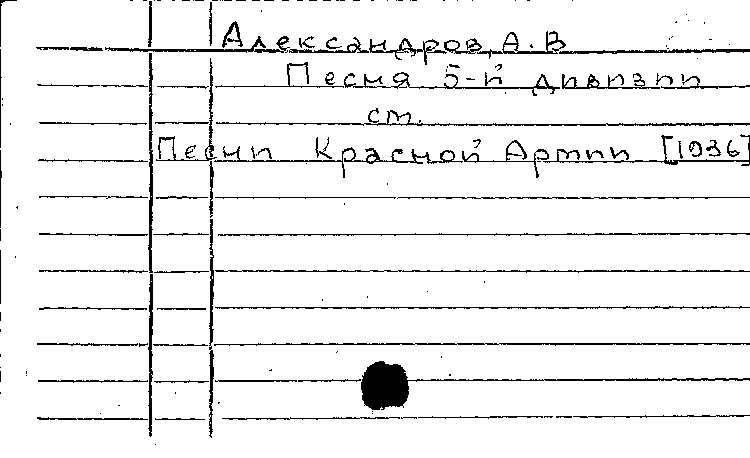 Александров, А. В
Песня 5-й дивизии
см.
Песни Красной Армии [1936]